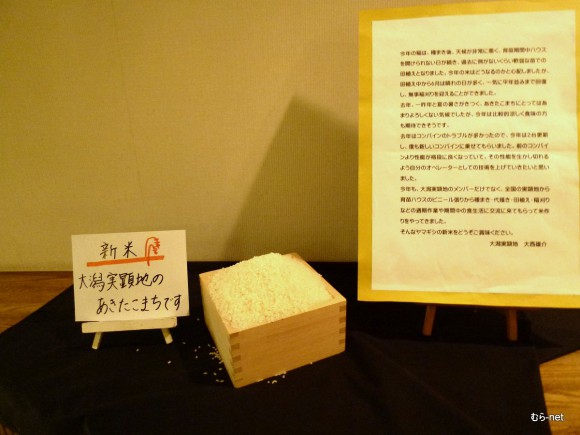 新米
大潟実顕地の
あきたこまちです
今年の稲は、種まき後、天候が非常に悪く、育苗期間中ハウス
を開けられない日が続き、過去に例がないくらい軟弱な苗での
田植えとなりました。今年の米はどうなるのかと心配しましたが、
田植え中から6月は晴れの日が多く、一気に平年並みまで回復
し、無事稲刈りを迎えることができました。
去年、一昨年と夏の暑さがきつく、あきたこまちにとってはあ
まりよろしくない気候でしたが、今年は比較的涼しく食味の方
も期待できそうです。
去年はコンバインのトラブルが多かったので、今年は2台更新
し、僕も新しいコンバインに乗せてもらいました。前のコンバイ
ンより性能が格段に良くなっていて、その性能を生かし切れる
よう自分のオペレーターとしての技術を上げていきたいと思い
ました。
今年も、大潟実顕地のメンバーだけでなく、全国の実顕地から
育苗ハウスのビニール張りから種まき・代掻き・田植え・稲刈り
などの適期作業や期間中の食生活に交流に来てもらって米作
りをやってきました。
そんなヤマギシの新米をどうぞご賞味ください。
大潟実顕地 大西雄介
むら-net